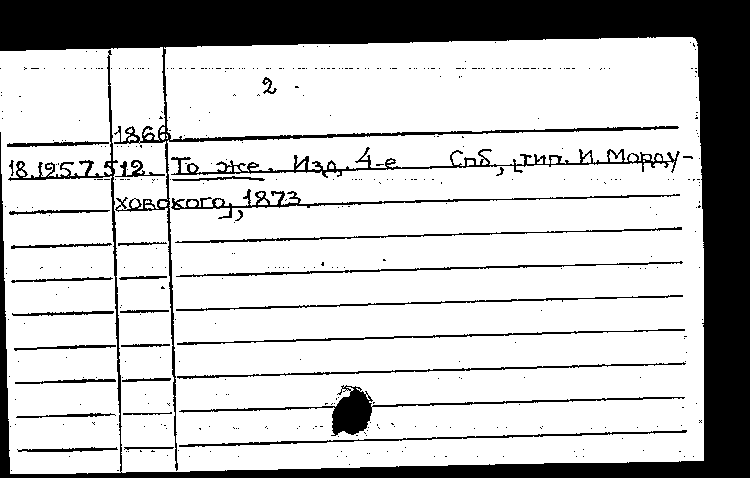 2.
1866.
18.195.7.512. То же. Изд. 4-е Спб., [тип. И. Морду-
ховского], 1873.